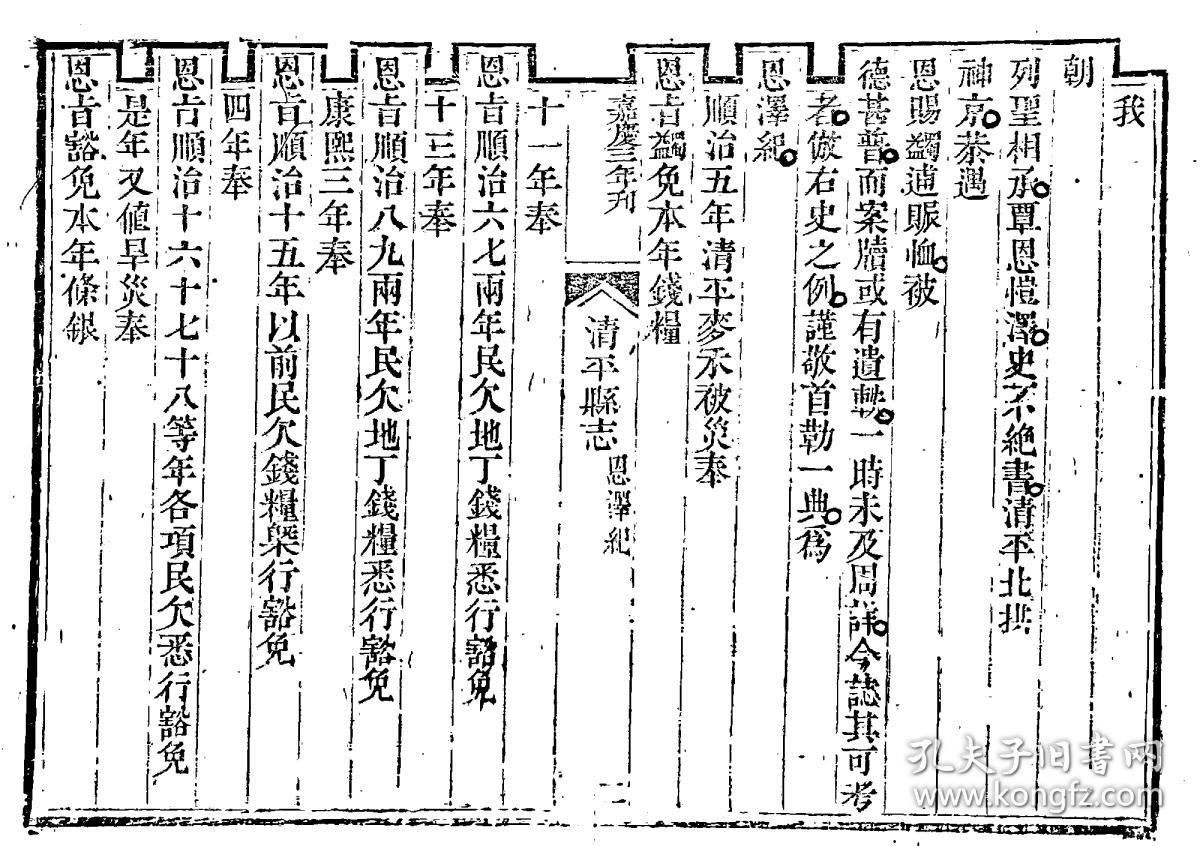 我
朝
列聖相承覃恩愷澤史不絶書清平北拱
神京恭遇
恩賜蠲逋賑恤被
德甚普而案牘或有遺軼一時未及周詳今誌其可考
者倣右史之例謹敬首勒一典爲
恩澤紀
順治五年清平麥禾被災奉
恩旨蠲免本年錢糧
嘉慶三年刋
清平縣志 恩澤紀
十一年奉
恩旨順治六七兩年民欠地丁錢糧悉行豁免
十三年奉
恩旨順治八九兩年民欠地丁錢糧悉行豁免
康熙三年奉
恩旨順治十五年以前民欠錢糧槩行豁免
四年奉
恩旨順治十六十七十八等年各項民欠悉行豁免
是年又値旱災奉
恩旨豁免本年條銀
孔夫子旧书网
www.kongfz.com